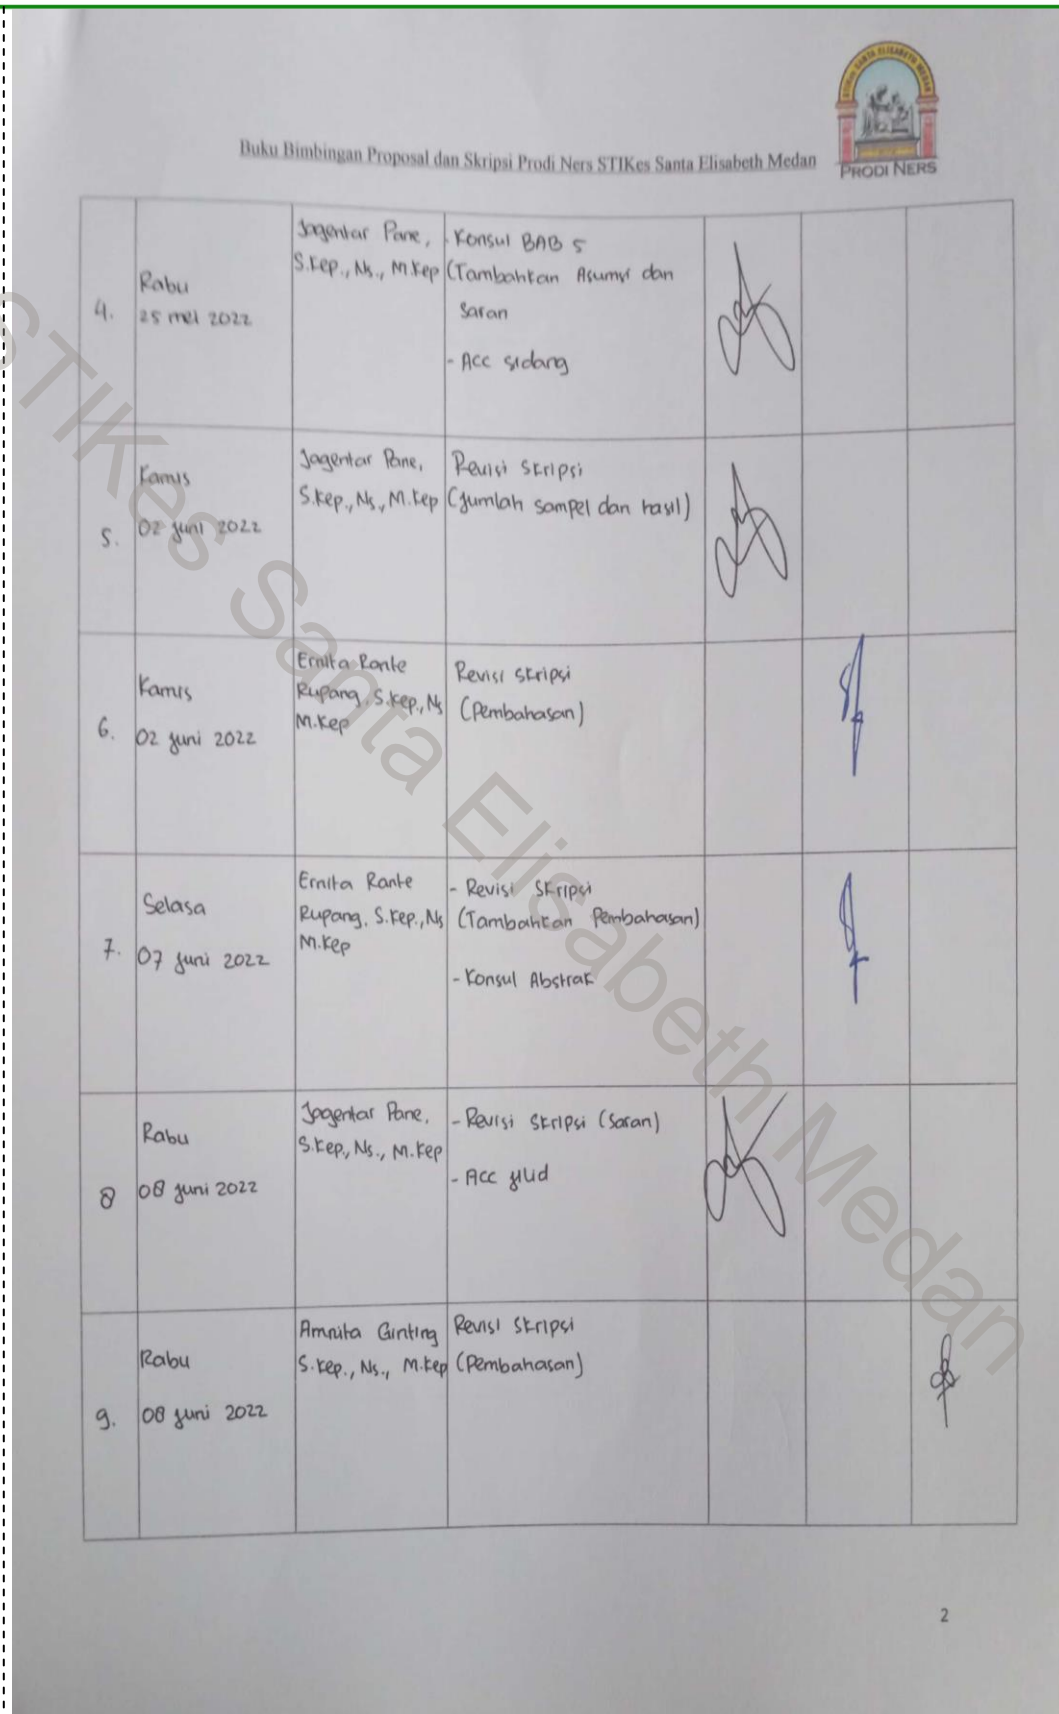 STIKes SANTA ELISABETH MEDAN
PRODI NERS
Buku Bimbingan Proposal dan Skripsi Prodi Ners STIKes Santa Elisabeth Medan
4.
Rabu
25 mei 2022
Jagentar Pane,
S.Kep., Ns., M.Kep
- Konsul BAB 5
(Tambahkan Asumsi dan
Saran
- Acc sidang
5.
Kamis
02 Juni 2022
Jagentar Pane,
S.Kep., Ns, M.Kep
Revisi Skripsi
(Jumlah sampel dan hasil)
6.
Kamis
02 Juni 2022
Ernita Rante
Rupang, S.Kep., Ns
M.Kep
Revisi Skripsi
(Pembahasan)
7.
Selasa
07 Juni 2022
Ernita Rante
Rupang, S.Kep., Ns
M.Kep
- Revisi Skripsi
(Tambahkan Pembahasan)
- Konsul Abstrak
8
Rabu
08 Juni 2022
Jagentar Pane,
S.Kep., Ns., M.Kep
- Revisi Skripsi (Saran)
- Acc jilid
9.
Rabu
08 Juni 2022
Amnita Ginting
S.Kep., Ns., M.Kep
Revisi Skripsi
(Pembahasan)
2
STIKes Santa Elisabeth Medan